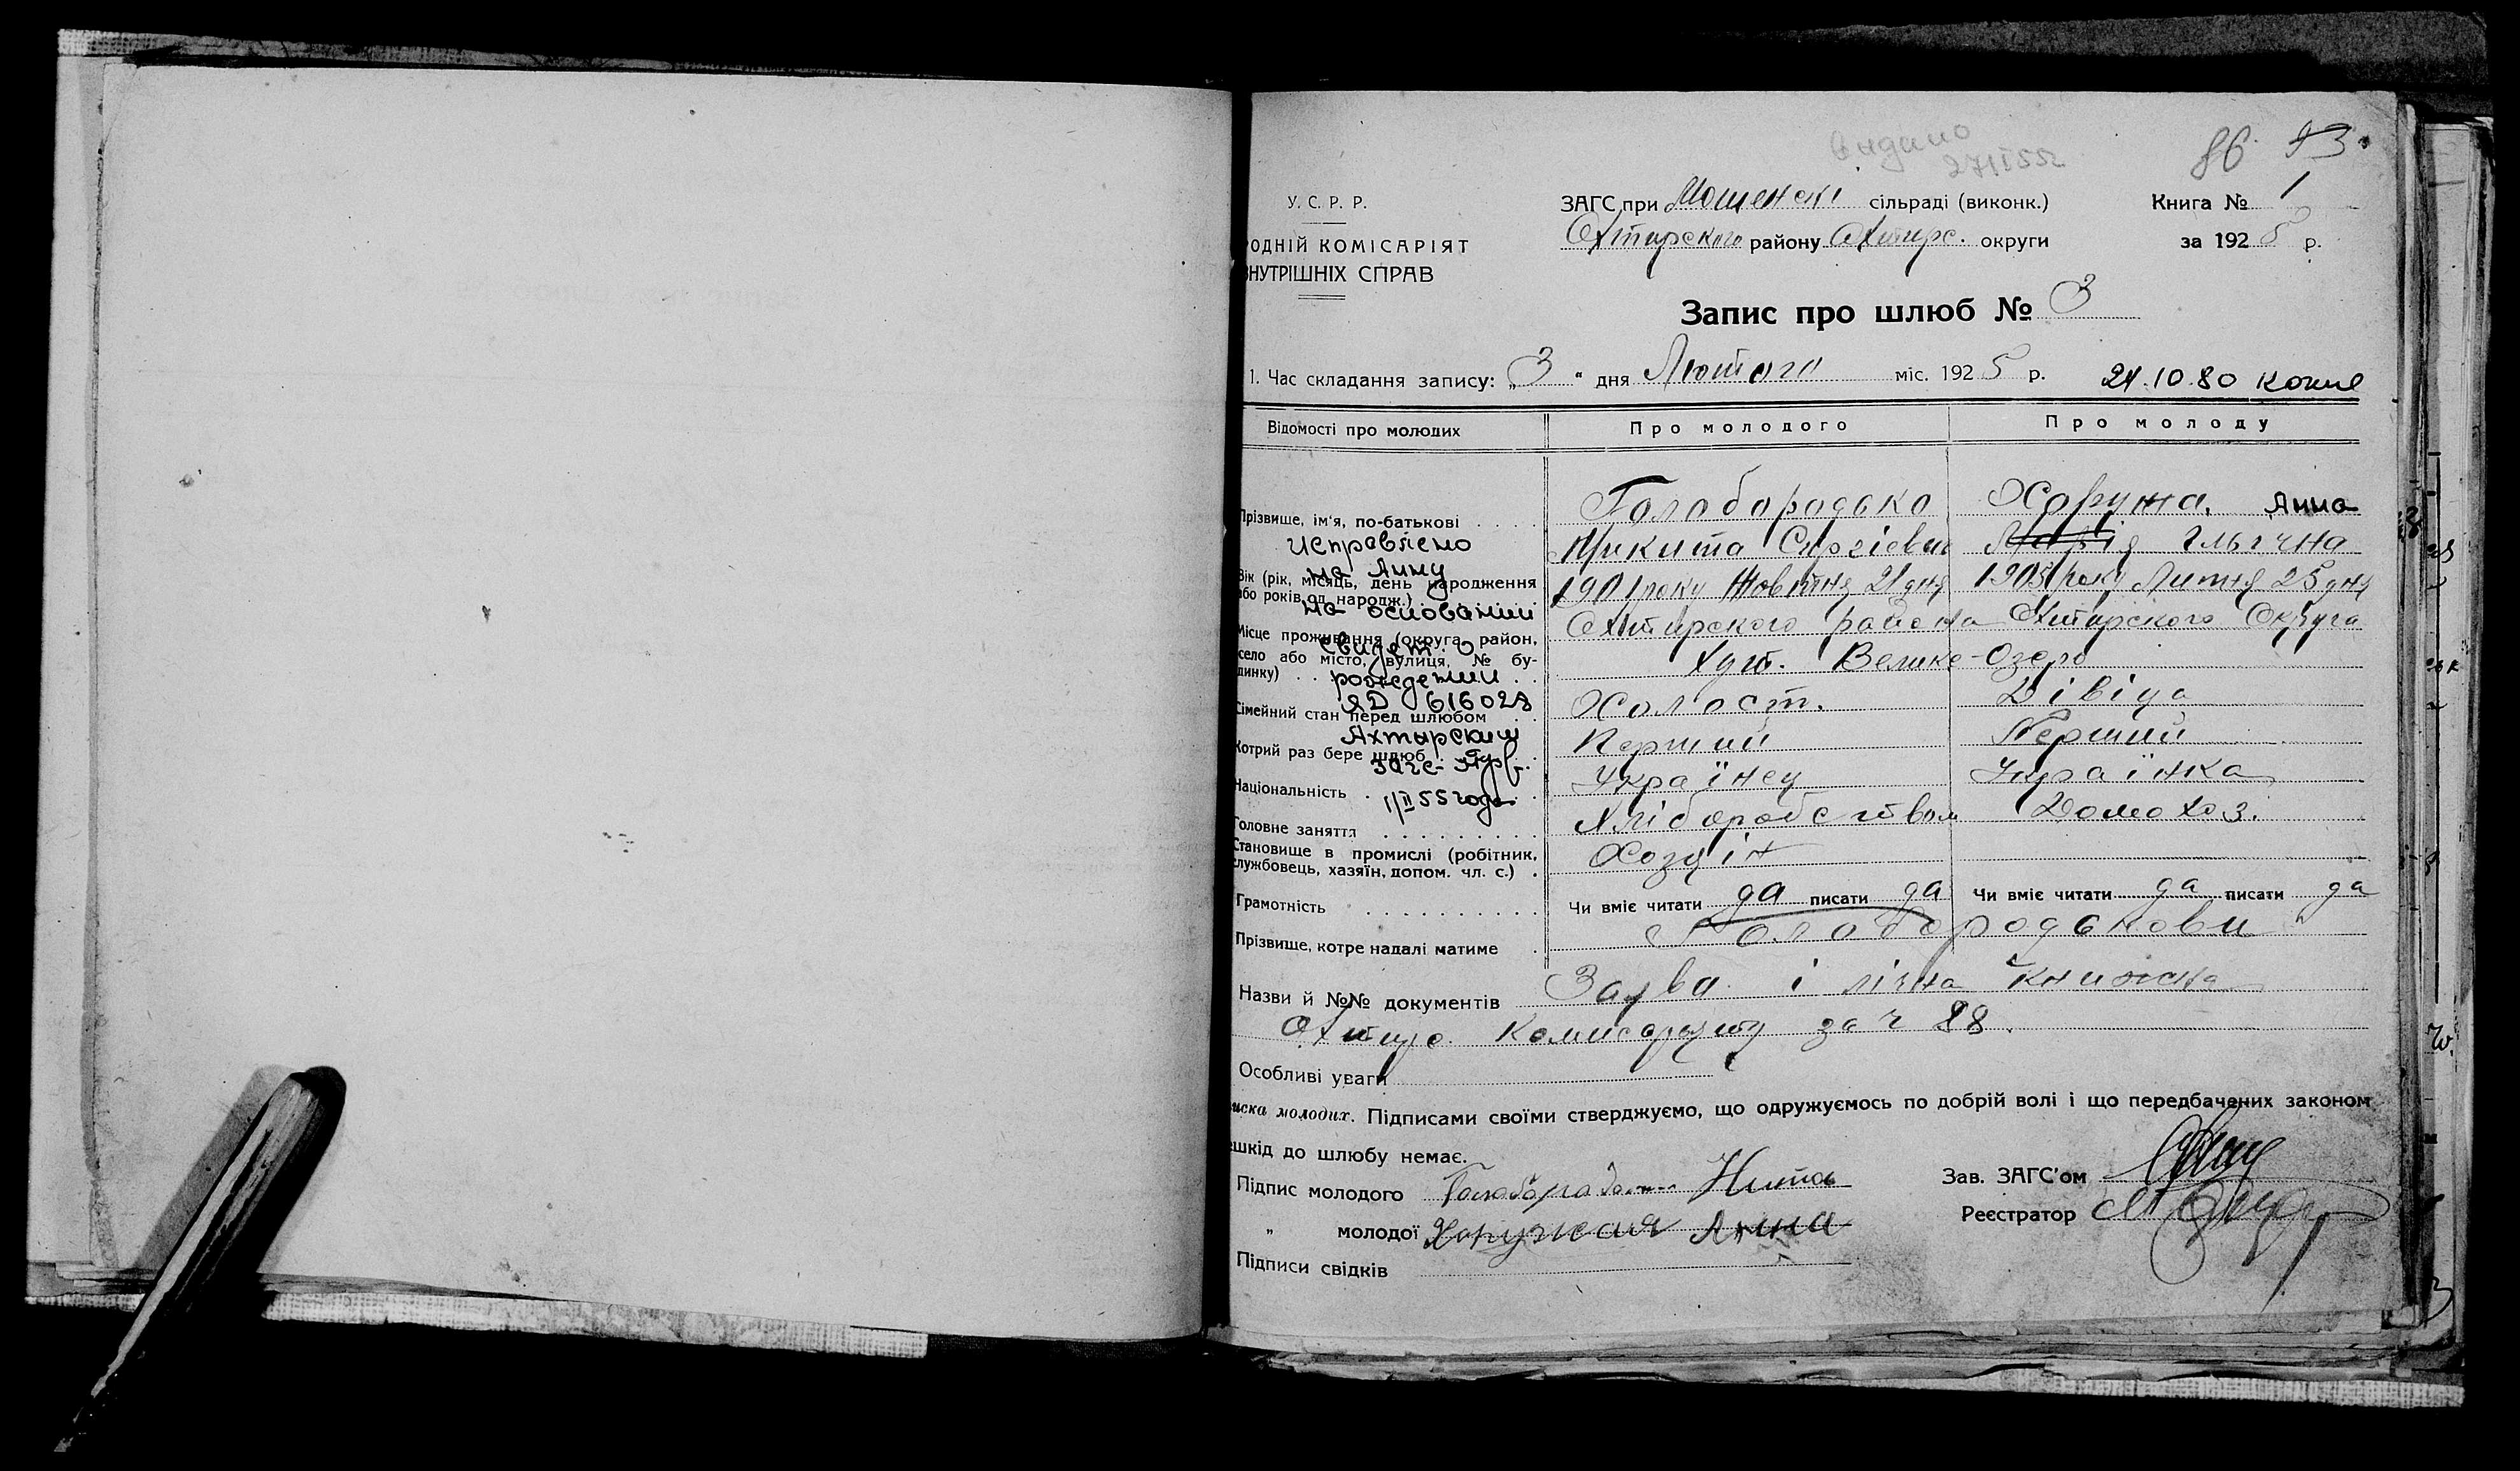 Видано
86. 93.
У. С. Р. Р.
ЗАГС при Мошенскі сільраді (виконк.)
Книга № 1
Охтирского району Охтирс. округи
за 1925 р.
ОДНІЙ КОМІСАРІЯТ
НУТРІШНІХ СПРАВ
Запис про шлюб № 3
1. Час складання запису: „3“ дня Лютого міс. 1925 р.
24.10.80 копие
Відомості про молодих
Про молодого
Про молоду
Прізвище, ім'я, по-батькові
Голобородько
Харужа. Анна
Микита Сергіевич
Марія Ільічна
Исправлено
на Анну
на основании
свидет. о
рождении
ЯД 616028
Ахтырским
загс
1/II 55 года
Вік (рік, місяць, день народження
або років од народж.)
1901 року Жовтня 21 дня
1905 року Лютня 25 дня
Місце проживання (округа, район,
село або місто, вулиця, № бу-
динку)
Охтирского района Охтирского Округа
Хут. Велике-Озеро
Сімейний стан перед шлюбом
Холост.
Дівіца
Котрий раз бере шлюб
Перший
Перший
Національність
Українец
Українка
Головне заняття
Хліборобством
Домохоз.
Становище в промислі (робітник,
службовець, хазяїн, допом. чл. с.)
Хозяін
Грамотність
Чи вміє читати да писати да
Чи вміє читати да писати да
Прізвище, котре надалі матиме
Голобородькови
Назви й №№ документів
Заява і лічна книжка
Охтирс. Комисаріяту за ч 88.
Особливі уваги
иска молодих. Підписами своїми стверджуємо, що одружуємось по добрій волі і що передбачених законом
ешкід до шлюбу немає.
Підпис молодого
Зав. ЗАГС'ом
„ молодої Хоружая Анна
Реєстратор
Підписи свідків